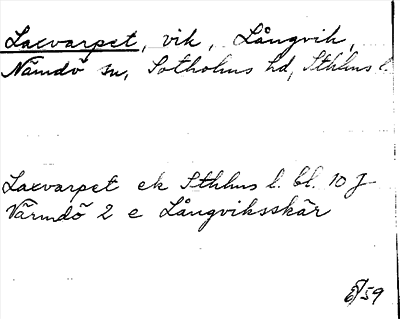 Laxvarpet, vik, Långvik,
Nämdö sn, Sotholms hd, Sthlms l.
Laxvarpet ek Sthlms l. bl. 10 J
Värmdö 2 e Långviksskär
59